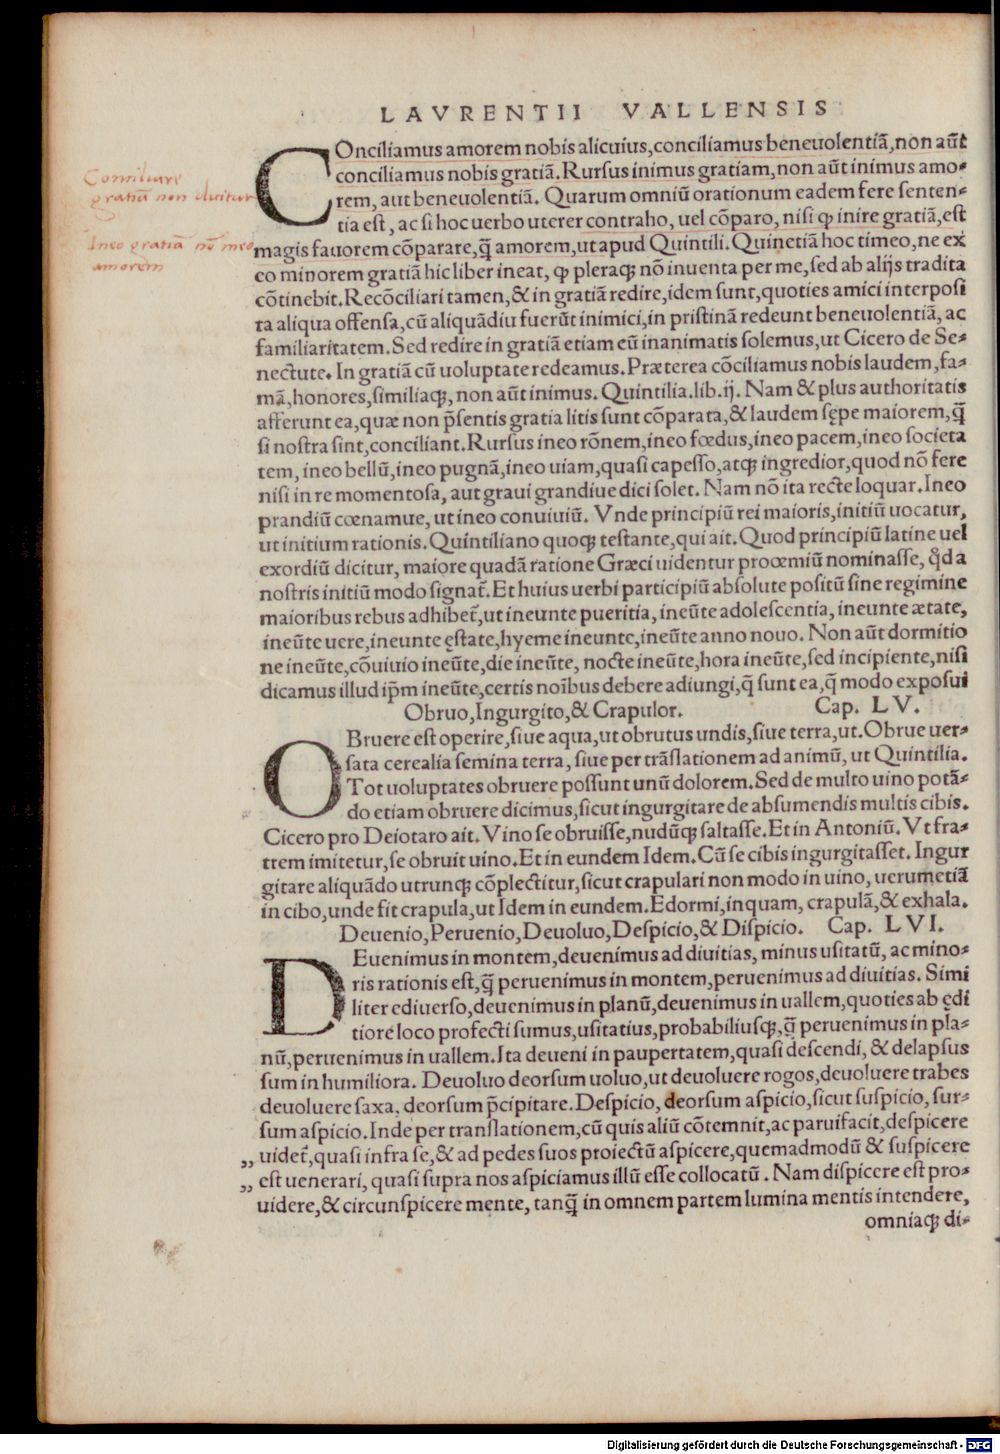 LAVRENTII VALLENSIS
COnciliamus amorem nobis alicuius,conciliamus beneuolentiã,non aũt
conciliamus nobis gratiã. Rursus inimus gratiam, non aũt inimus amo-
rem, aut beneuolentiã. Quarum omniũ orationum eadem fere senten-
tia est, ac si hoc uerbo uterer contraho, uel cõparo, nisi ꝙ inire gratiã,est
magis fauorem cõparare,q̃ amorem,ut apud Quintili. Quinetiã hoc timeo, ne ex
eo minorem gratiã hic liber ineat, ꝙ pleraqꝫ nõ inuenta per me, sed ab alijs tradita
cõtinebit. Recõciliari tamen,& in gratiã redire,idem sunt,quoties amici interposi
ta aliqua offensa,cũ aliquãdiu fuerũt inimici,in pristinã redeunt beneuolentiã, ac
familiaritatem. Sed redire in gratiã etiam eũ inanimatis solemus, ut Cicero de Se-
nectute. In gratiã cũ uoluptate redeamus. Præterea cõciliamus nobis laudem, fa-
mã,honores,similiaqꝫ, non aũt inimus. Quintilia.lib.ij. Nam & plus authoritatis
afferunt ea, quæ non p̃sentis gratia litis sunt cõparata,& laudem sępe maiorem,q̃
si nostra sint,conciliant. Rursus ineo rõnem,ineo fœdus,ineo pacem,ineo societa
tem, ineo bellũ,ineo pugnã,ineo uiam,quasi capesso,atqꝫ ingredior,quod nõ fere
nisi in re momentosa, aut graui grandiue dici solet. Nam nõ ita recte loquar. Ineo
prandiũ cœnamue, ut ineo conuiuiũ. Vnde principiũ rei maioris,initiũ uocatur,
ut initium rationis. Quintiliano quoqꝫ testante, qui ait. Quod principiũ latine uel
exordiũ dicitur, maiore quadã ratione Græci uidentur proœmiũ nominasse, q̃d a
nostris initiũ modo signat̃. Et huius uerbi participiũ absolute positũ sine regimine
maioribus rebus adhibet̃, ut ineunte pueritia, ineũte adolescentia, ineunte ætate,
ineũte uere,ineunte ęstate,hyeme ineunte,ineũte anno nouo. Non aũt dormitio
ne ineũte,cõuiuio ineũte,die ineũte, nocte ineũte,hora ineũte,sed incipiente,nisi
dicamus illud ip̃m ineũte,certis noĩbus debere adiungi,q̃ sunt ea,q̃ modo exposui
Obruo, Ingurgito,& Crapulor. Cap. LV.
OBruere est operire,siue aqua,ut obrutus undis,siue terra,ut. Obrue uer-
sata cerealia semina terra, siue per trãslationem ad animũ, ut Quintilia.
Tot uoluptates obruere possunt unũ dolorem. Sed de multo uino potã-
do etiam obruere dicimus,sicut ingurgitare de absumendis multis cibis.
Cicero pro Deiotaro ait. Vino se obruisse,nudũqꝫ saltasse. Et in Antoniũ. Vt fra-
trem imitetur,se obruit uino. Et in eundem Idem. Cũ se cibis ingurgitasset. Ingur
gitare aliquãdo utrunqꝫ cõplectitur,sicut crapulari non modo in uino, uerumetiã
in cibo, unde fit crapula, ut Idem in eundem. Edormi,inquam, crapulã,& exhala.
Deuenio, Peruenio, Deuoluo, Despicio,& Dispicio. Cap. LVI.
DEuenimus in montem, deuenimus ad diuitias, minus usitatũ, ac mino-
ris rationis est,q̃ peruenimus in montem,peruenimus ad diuitias. Simi
liter ediuerso,deuenimus in planũ,deuenimus in uallem,quoties ab ędi
tiore loco profecti sumus,usitatius,probabiliusqꝫ,q̃ peruenimus in pla-
nũ,peruenimus in uallem. Ita deueni in paupertatem,quasi descendi, & delapsus
sum in humiliora. Deuoluo deorsum uoluo,ut deuoluere rogos,deuoluere trabes
deuoluere saxa, deorsum p̃cipitare. Despicio, deorsum aspicio,sicut suspicio, sur-
sum aspicio. Inde per translationem,cũ quis aliũ cõtemnit,ac paruifacit,despicere
„ uidet̃,quasi infra se,& ad pedes suos proiectũ aspicere,quemadmodũ & suspicere
„ est uenerari, quasi supra nos aspiciamus illũ esse collocatũ. Nam dispicere est pro-
uidere,& circunspicere mente, tanq̃ in omnem partem lumina mentis intendere,
omniaqꝫ di-
Consiliare
gratiã non dicitur
Ineo gratiã nõ ineo
amorem
Digitalisierung gefördert durch die Deutsche Forschungsgemeinschaft - DFG